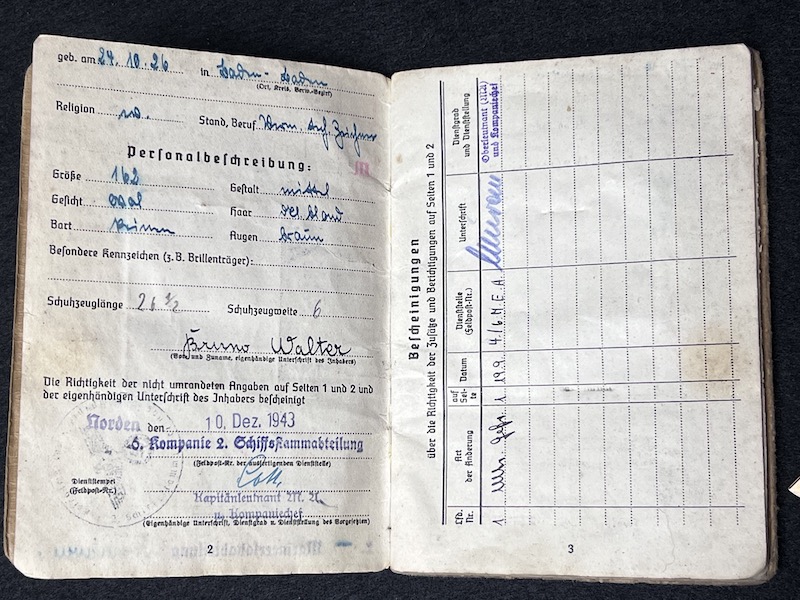 geb. am 24. 10. 26 in Baden-Baden
(Ort, Kreis, Verw.-Bezirk)
Religion Stand, Beruf Verm. Zeichner
Personalbeschreibung:
Größe 162 Gestalt mittel
Gesicht oval Haar blond
Bart keinen Augen braun
Besondere Kennzeichen (z. B. Brillenträger):
Schuhzeuglänge 26 1/2 Schuhzeugweite 6
Bruno Walter
(Vor- und Zuname, eigenhändige Unterschrift des Inhabers)
Die Richtigkeit der nicht umrandeten Angaben auf Seiten 1 und 2 und
der eigenhändigen Unterschrift des Inhabers bescheinigt
Norden den 10. Dez. 1943
6. Kompanie 2. Schiffsstammabteilung
(Feldpost-Nr. der ausfertigenden Dienststelle)
Dienststempel
(Feldpost-Nr.)
Kapitänleutnant M. A.
u. Kompaniechef
(Eigenhändige Unterschrift, Dienstgrad u. Dienststellung des Vorgesetzten)
2
Bescheinigungen
über die Richtigkeit der Zusätze und Berichtigungen auf Seiten 1 und 2
Lfd. Nr.
Art der Änderung
auf Sei- te
Datum
Dienststelle (Feldpost-Nr.)
Unterschrift
Dienstgrad und Dienststellung
1 Gefr. 1 19.9. 4./6. M.E.A. Oberleutnant (MA)
und Kompaniechef
3